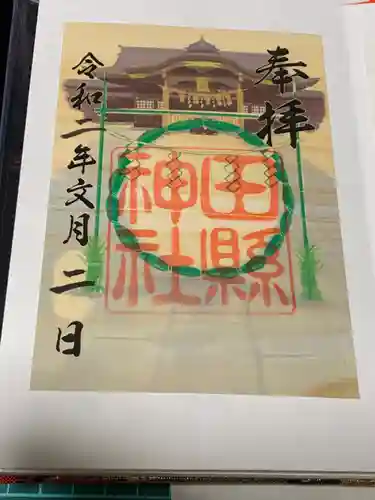 奉拝
田縣
神社
令和二年文月二日